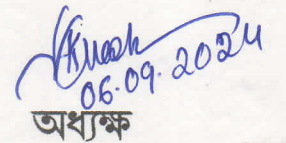 06.09.2024
অধ্যক্ষ